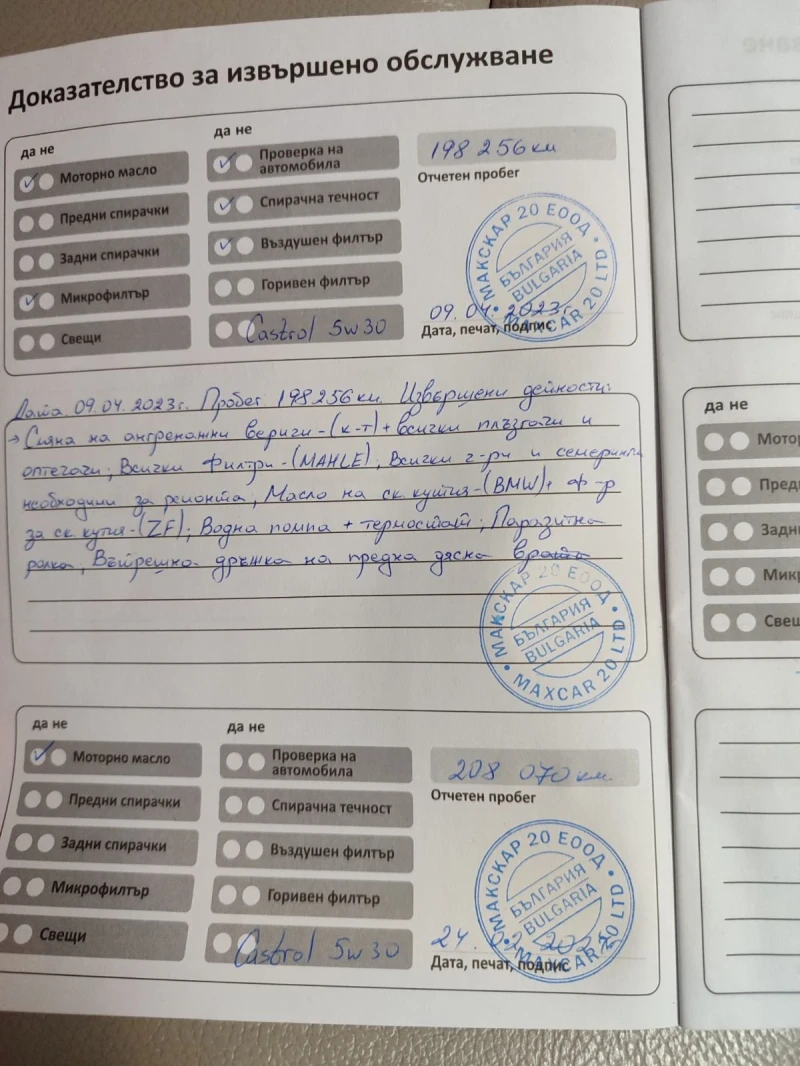 Доказателство за извършено обслужване
да не
да не
Моторно масло
Предни спирачки
Задни спирачки
Микрофилтър
Свещи
Проверка на
автомобила
Спирачна течност
Въздушен филтър
Горивен филтър
Castrol 5w30
198 256 км
Отчетен пробег
МАКСКАР 20 ЕООД • MAXCAR 20 LTD •
БЪЛГАРИЯ
BULGARIA
09.04.2023г.
Дата, печат, подпис
Дата 09.04.2023г. Пробег 198256км. Извършени дейности:
→ Смяна на ангренажни вериги-(к-т)+всички плъзгачи и
оптегачи; Всички филтри-(MAHLE), Всички г-ри и семеринги
необходими за ремонта, Масло на ск. кутия-(BMW)+ ф-р
за ск. кутия-(ZF); Водна помпа + термостат; Паразитна
ролка, Вътрешна дръжка на предна дясна врата
МАКСКАР 20 ЕООД • MAXCAR 20 LTD •
БЪЛГАРИЯ
BULGARIA
да не
да не
Моторно масло
Предни спирачки
Задни спирачки
Микрофилтър
Свещи
Проверка на
автомобила
Спирачна течност
Въздушен филтър
Горивен филтър
Castrol 5w30
208 070 км.
Отчетен пробег
МАКСКАР 20 ЕООД • MAXCAR 20 LTD •
БЪЛГАРИЯ
BULGARIA
24.
Дата, печат, подпис
да не